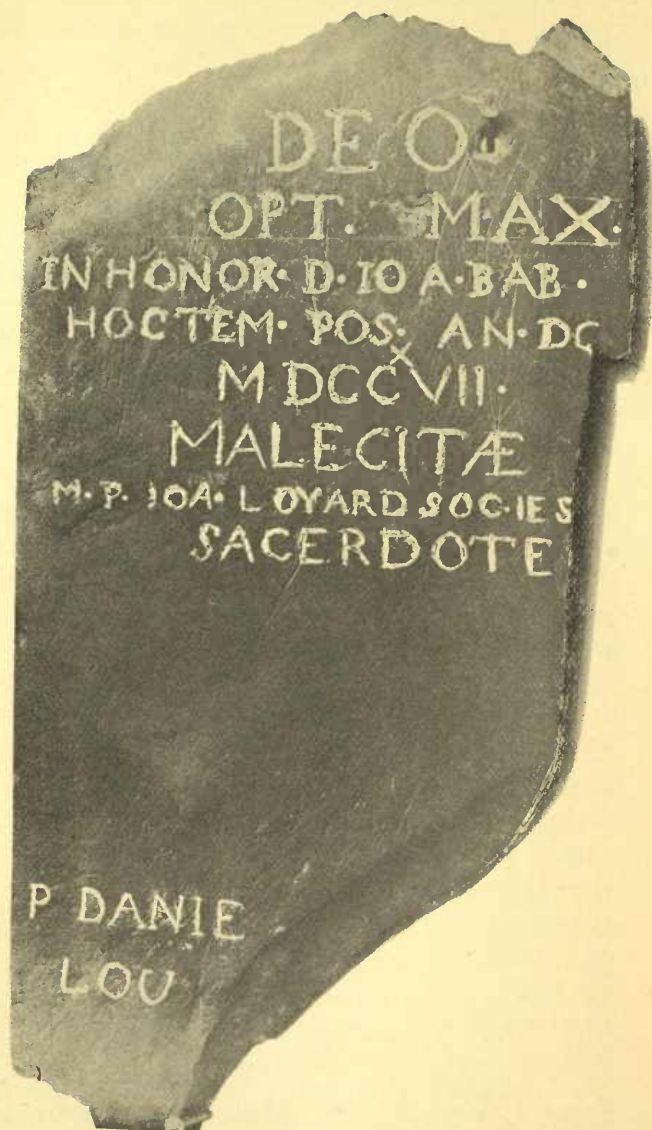 DEO
OPT. MAX.
IN HONOR· D· IO A· BAB·
HOC TEM· POS· AN· DC
MDCCXVII·
MALECITÆ
M· P· IOA· LOYARD SOC· IES
SACERDOTE
P DANIE
LOU